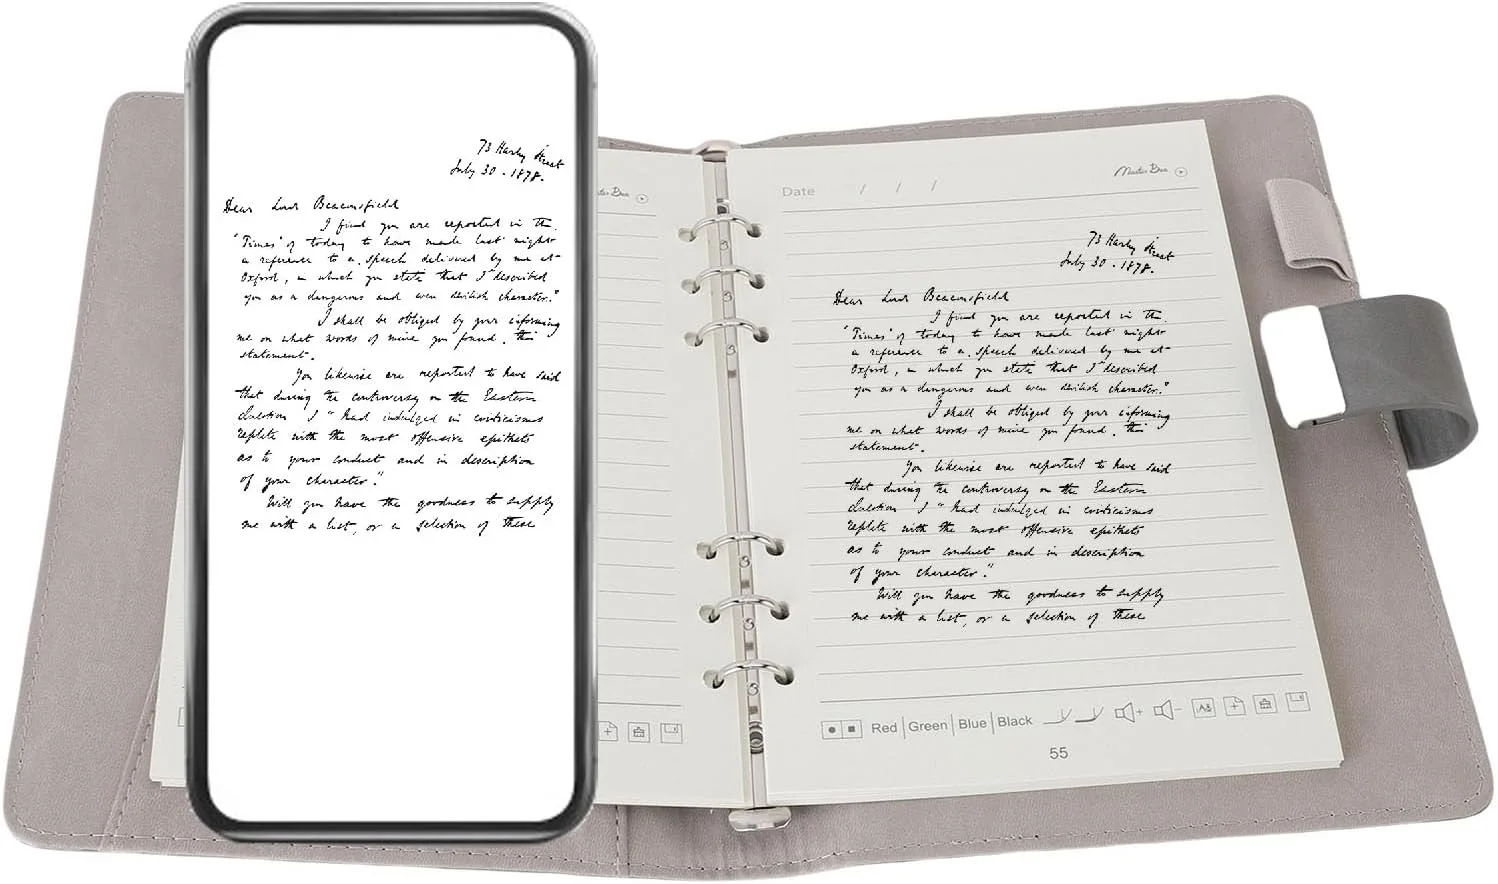 73 Harley Street
July 30 . 1878.
Dear Lord Beaconsfield
I find you are reported in the
'Times' of today to have made last night
a reference to a speech delivered by me at
Oxford, in which you state that I "described
you as a dangerous and even devilish character."
I shall be obliged by your informing
me on what words of mine you found this
statement.
You likewise are reported to have said
that during the controversy on the Eastern
Question I "had indulged in criticisms
replete with the most offensive epithets
as to your conduct and in description
of your character."
Will you have the goodness to supply
me with a list, or a selection of these
Date / / /
73 Harley Street
July 30 . 1878.
Dear Lord Beaconsfield
I find you are reported in the
'Times' of today to have made last night
a reference to a speech delivered by me at
Oxford, in which you state that I "described
you as a dangerous and even devilish character."
I shall be obliged by your informing
me on what words of mine you found this
statement.
You likewise are reported to have said
that during the controversy on the Eastern
Question I "had indulged in criticisms
replete with the most offensive epithets
as to your conduct and in description
of your character."
Will you have the goodness to supply
me with a list, or a selection of these
Red | Green | Blue | Black
55